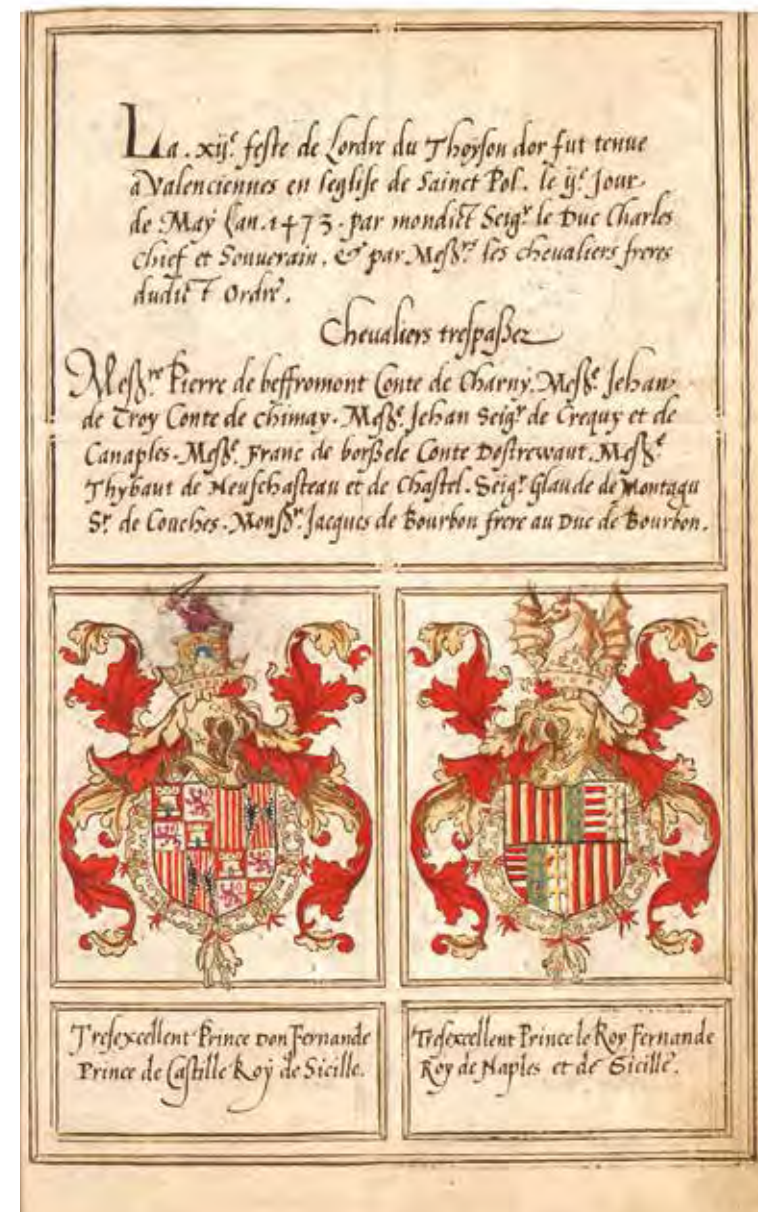 La . xij.e feste de Lordre du Thoyson dor fut tenue
a Valenciennes en leglise de Sainct Pol. le ij.e Jour
de May Lan. 1473. par mondict Seig.r le Duc Charles
Chief et Souuerain. & par Meßrs les cheualiers freres
dudict Ordre.
Cheualiers trespaßez
Meßre Pierre de beffromont Conte de Charny. Meße Jehan
de Croy Conte de Chimay. Meße Jehan Seig.r de Crequy et de
Canaples. Meße Franc de borßele Conte Dostrewaut. Meße
Thybaut de Neufchasteau et de Chastel. Seig.r Glaude de Montagu
S.r de Couches. Monsr Jacques de Bourbon frere au Duc de Bourbon.
Tresexcellent Prince Don Fernande
Prince de Castille Roy de Sicille.
Tresexcellent Prince le Roy Fernande
Roy de Naples et de Sicille.